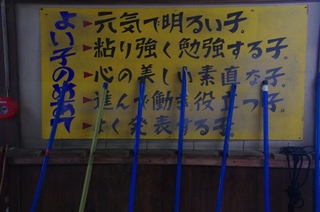 よい子のめあて
▶元気で明るい子。
▶粘り強く勉強する子。
▶心の美しい素直な子。
▶進んで働き役立つ子。
▶よく発表する子。